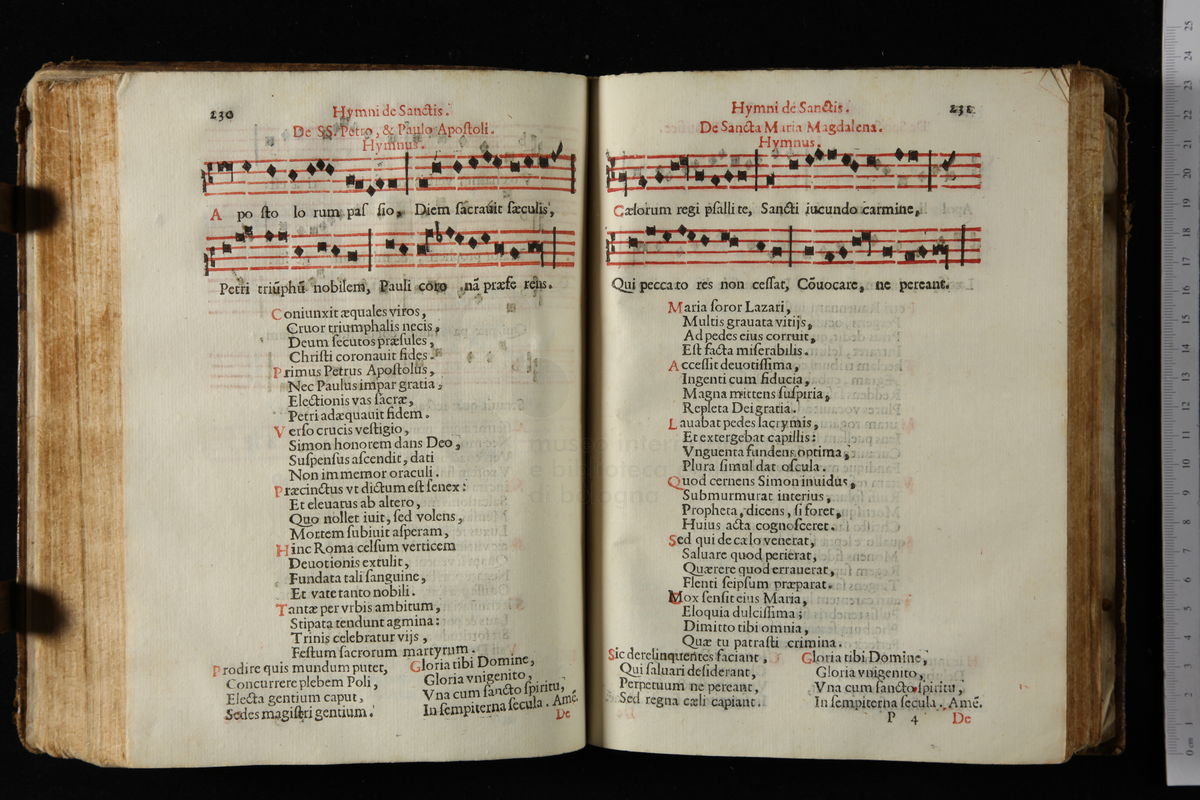 230
Hymni de Sanctis.
De SS. Petro, & Paulo Apostoli.
Hymnus.
A po sto lo rum pas sio, Diem sacrauit sæculis,
Petri triūphū nobilem, Pauli coro nā præfe rens.
Coniunxit æquales viros,
Cruor triumphalis necis,
Deum secutos præsules,
Christi coronauit fides.
Primus Petrus Apostolus,
Nec Paulus impar gratia,
Electionis vas sacræ,
Petri adæquauit fidem.
Verso crucis vestigio,
Simon honorem dans Deo,
Suspensus ascendit, dati
Non immemor oraculi.
Præcinctus vt dictum est senex:
Et eleuatus ab altero,
Quo nollet iuit, sed volens,
Mortem subiuit asperam,
Hinc Roma celsum verticem
Deuotionis extulit,
Fundata tali sanguine,
Et vate tanto nobili.
Tantæ per vrbis ambitum,
Stipata tendunt agmina:
Trinis celebratur vijs,
Festum sacrorum martyrum.
Prodire quis mundum putet,
Concurrere plebem Poli,
Electa gentium caput,
Sedes magistri gentium.
Gloria tibi Domine,
Gloria vnigenito,
Vna cum sancto spiritu,
In sempiterna secula. Amē.
De
231
Hymni de Sanctis.
De Sancta Maria Magdalena.
Hymnus.
Cælorum regi psalli te, Sancti iucundo carmine,
Qui pecca to res non cessat, Cōuocare, ne pereant.
Maria soror Lazari,
Multis grauata vitijs,
Ad pedes eius corruit,
Est facta miserabilis.
Accessit deuotissima,
Ingenti cum fiducia,
Magna mittens suspiria,
Repleta Dei gratia.
Lauabat pedes lacrymis,
Et extergebat capillis:
Vnguenta fundens optima,
Plura simul dat oscula.
Quod cernens Simon inuidus,
Submurmurat interius,
Propheta, dicens, si foret,
Huius acta cognosceret.
Sed qui de cælo venerat,
Saluare quod perierat,
Quærere quod errauerat,
Flenti seipsum præparat.
Mox sensit eius Maria,
Eloquia dulcissima;
Dimitto tibi omnia,
Quæ tu patrasti crimina.
Sic derelinquentes faciant,
Qui saluari desiderant,
Perpetuum ne pereant,
Sed regna cæli capiant.
Gloria tibi Domine,
Gloria vnigenito,
Vna cum sancto spiritu,
In sempiterna secula. Amē.
P 4
De